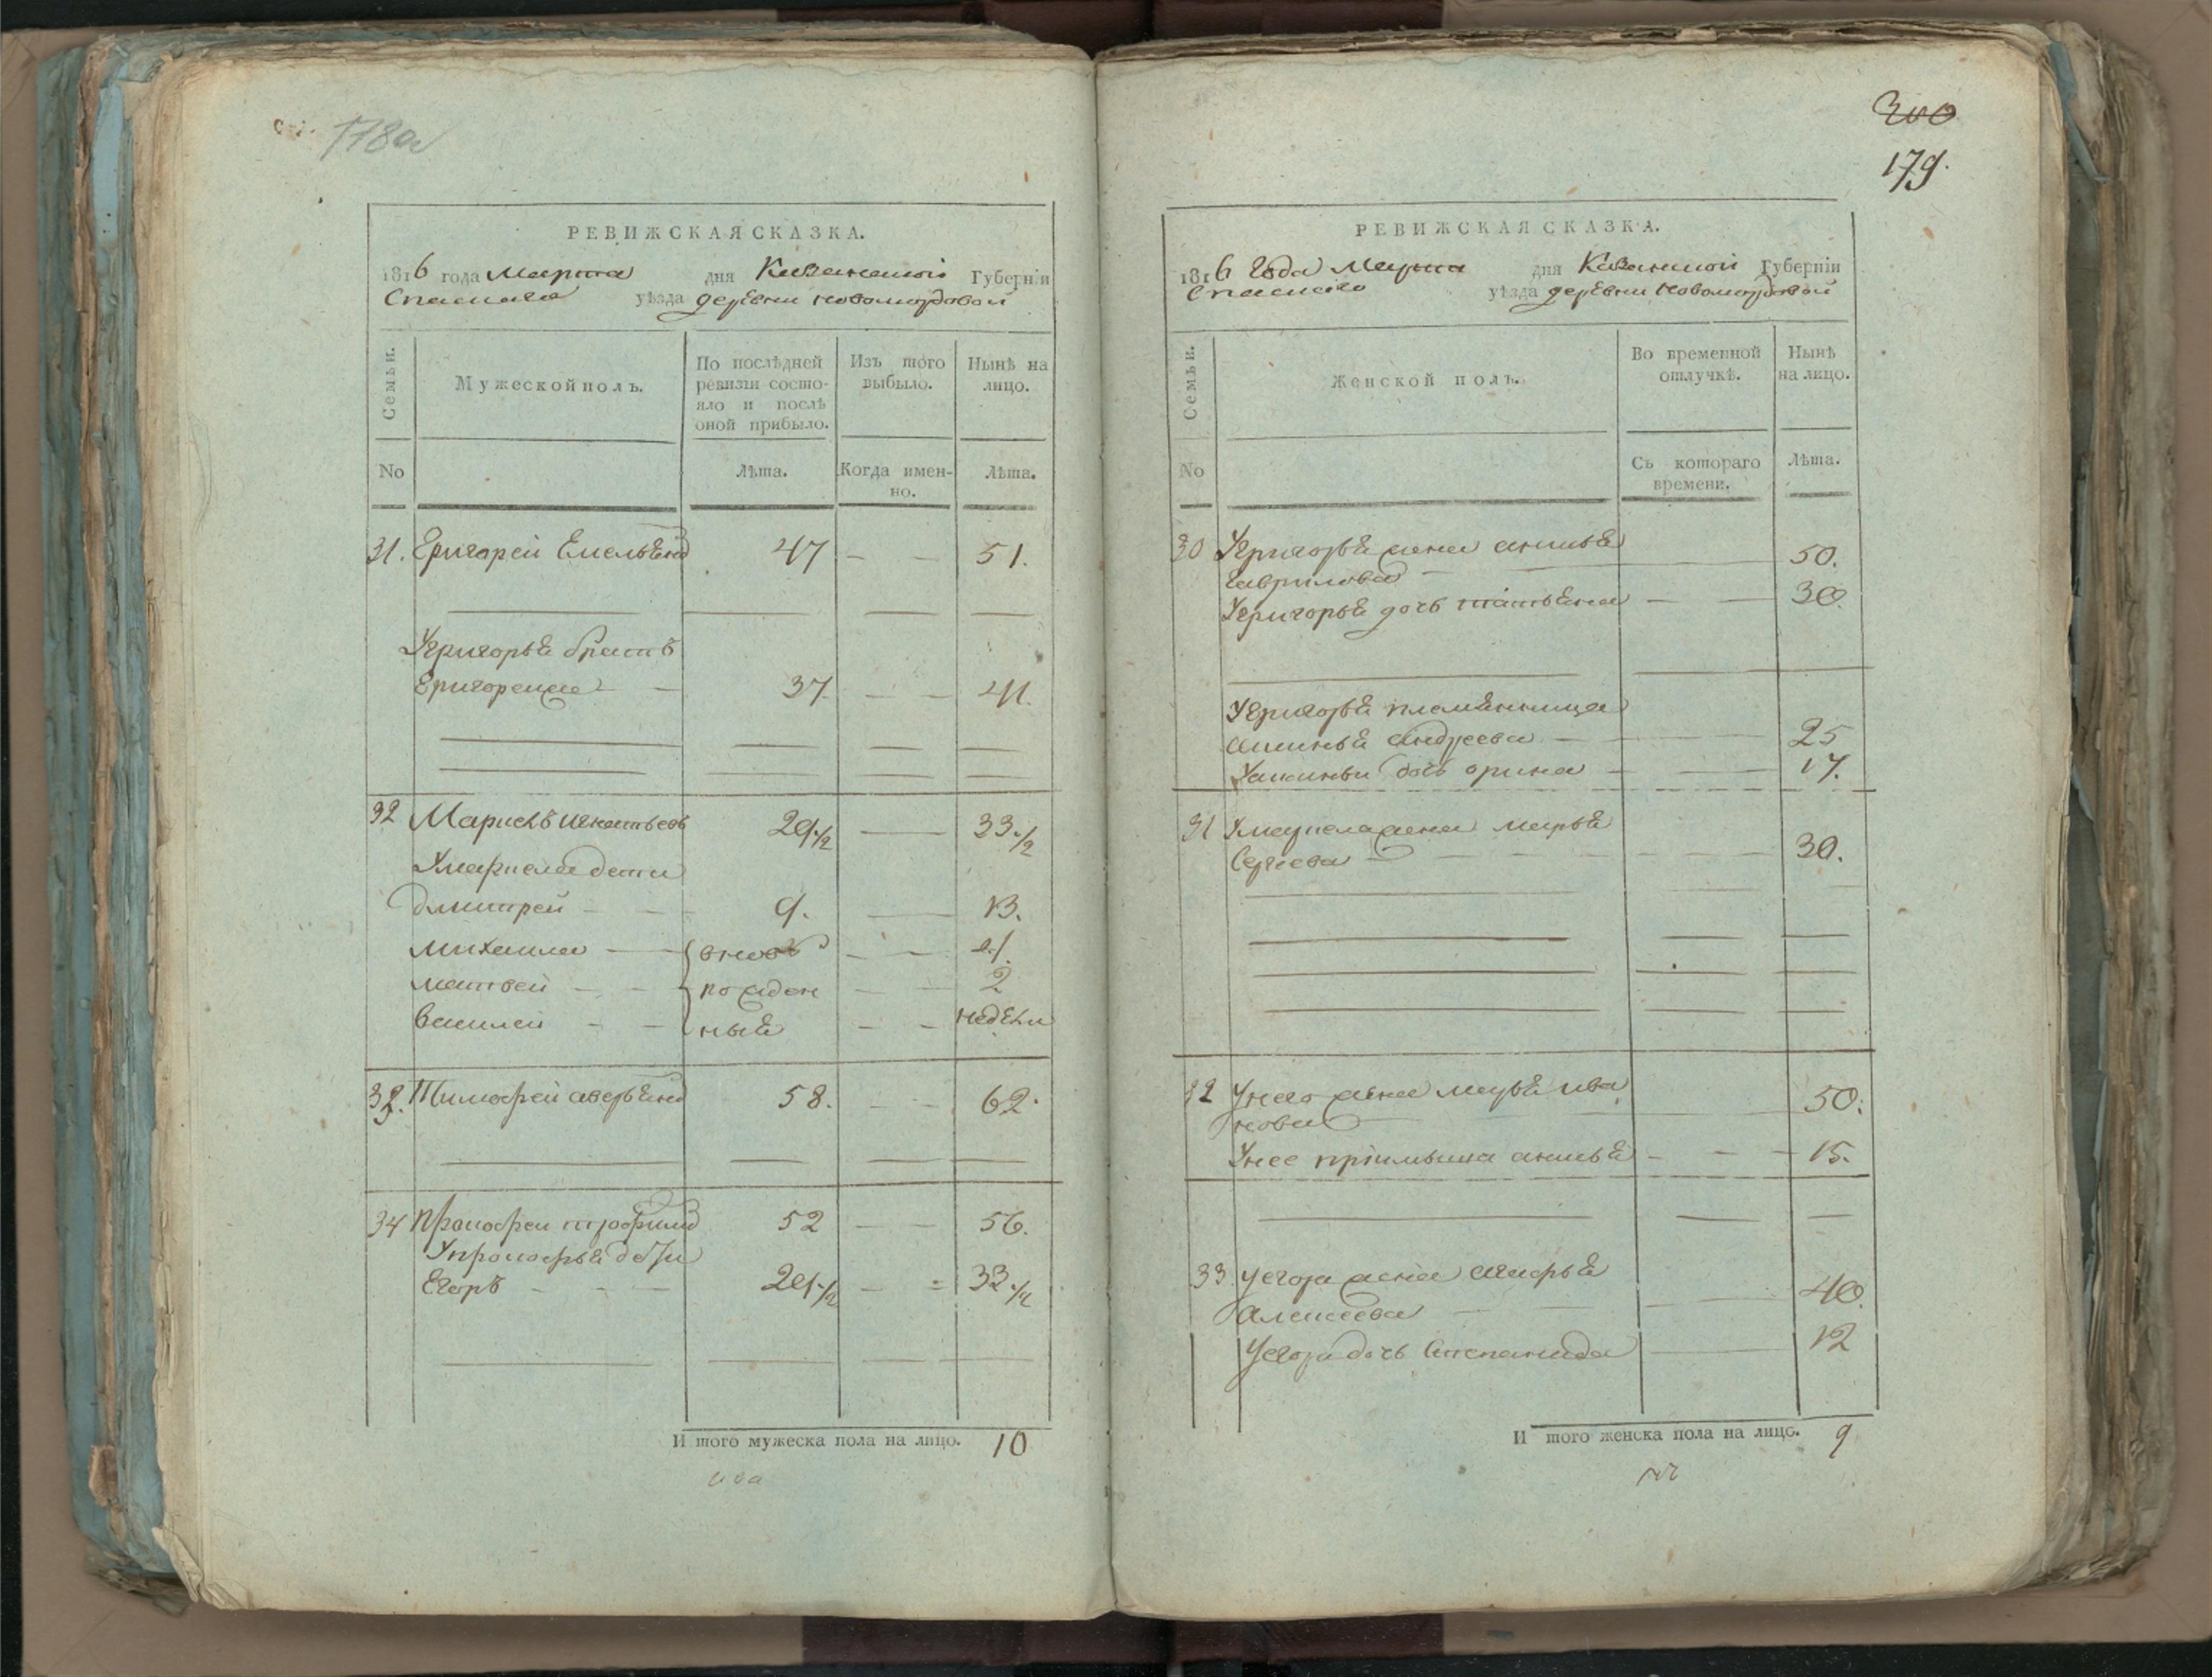 178а
РЕВИЖСКАЯ СКАЗКА.
1816 года Марта дня Казанской Губерніи
Спаскаго уѣзда деревни новомордовой
Семьи.
Мужеской полъ.
По послѣдней ревизіи состояло и послѣ оной прибыло.
Изъ того выбыло.
Нынѣ на лицо.
No
Лѣта.
Когда именно.
Лѣта.
31. Григорей Емельянв 47 — — 51.
Угригорья братъ
Григореи 37 — — 41.
32 Маркелъ игнатьевъ 29 1/2 — 33 1/2
Умаркела дети
дмитрей — 9. — 13.
михаила — вновь — — 4.
матвей — — рожден — — 2
василей — — ныя — — недели
33. Тимофей аверьянв 58. — — 62.
34 прокофеи трофимв 52 — — 56.
Упрокофья дети
Егоръ — — — 29 1/2 — = 33 1/2
И того мужеска пола на лицо. 10
200
179.
РЕВИЖСКАЯ СКАЗКА.
1816 Года Марта дня Казанской Губерніи
Спаскаго уѣзда деревни новомордовой
Семьи.
Женской полъ.
Во временной отлучкѣ.
Нынѣ на лицо.
No
Съ котораго времени.
Лѣта.
30 Угригорья жена
гаврилова — 50.
Угригорья дочь татьяна — — 30.
Угригорья племянница
аксинья андреева — 25
Уаксиньи дочь орина — — 17.
31 Умаркела жена марья
Сергеева — 30.
32 Унего жена марья ива
нова 50.
Унее пріимыша — — 15.
33. Уегора жена агафья
Алексеева — 40.
Уегора дочь Степанида — 12
И того женска пола на лицо. 9